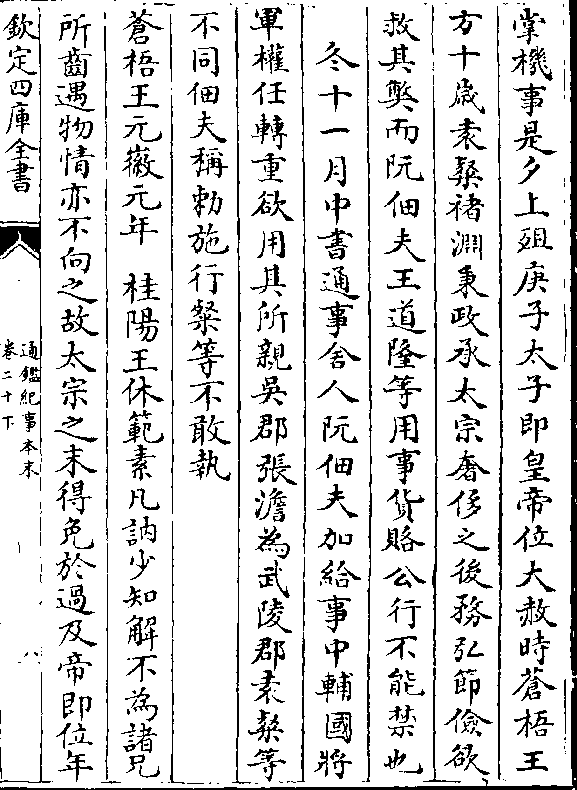 掌機事是夕上殂庚子太子即皇帝位大赦時蒼梧王
方十歲袁粲禇淵秉政承太宗奢侈之後務弘節儉欲
救其弊而阮佃夫王道隆等用事貨賂公行不能禁也
冬十一月中書通事舍人阮佃夫加給事中輔國將
軍權任轉重欲用其所親吳郡張澹為武陵郡袁粲等
不同佃夫稱勅施行粲等不敢執
蒼梧王元徽元年　桂陽王休範素凡訥少知解不為諸兄
所齒遇物情亦不向之故太宗之末得免於過及帝即位年
欽定四庫全書
通鑑紀事本末
卷二十下
八